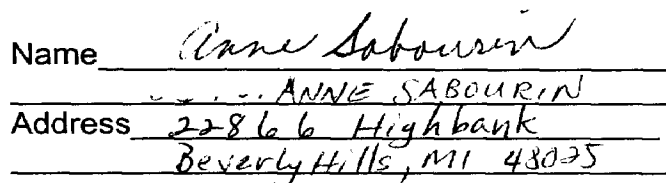 Name Anne Sabourin
ANNE SABOURIN
Address 22866 Highbank
Beverly Hills, MI 48025